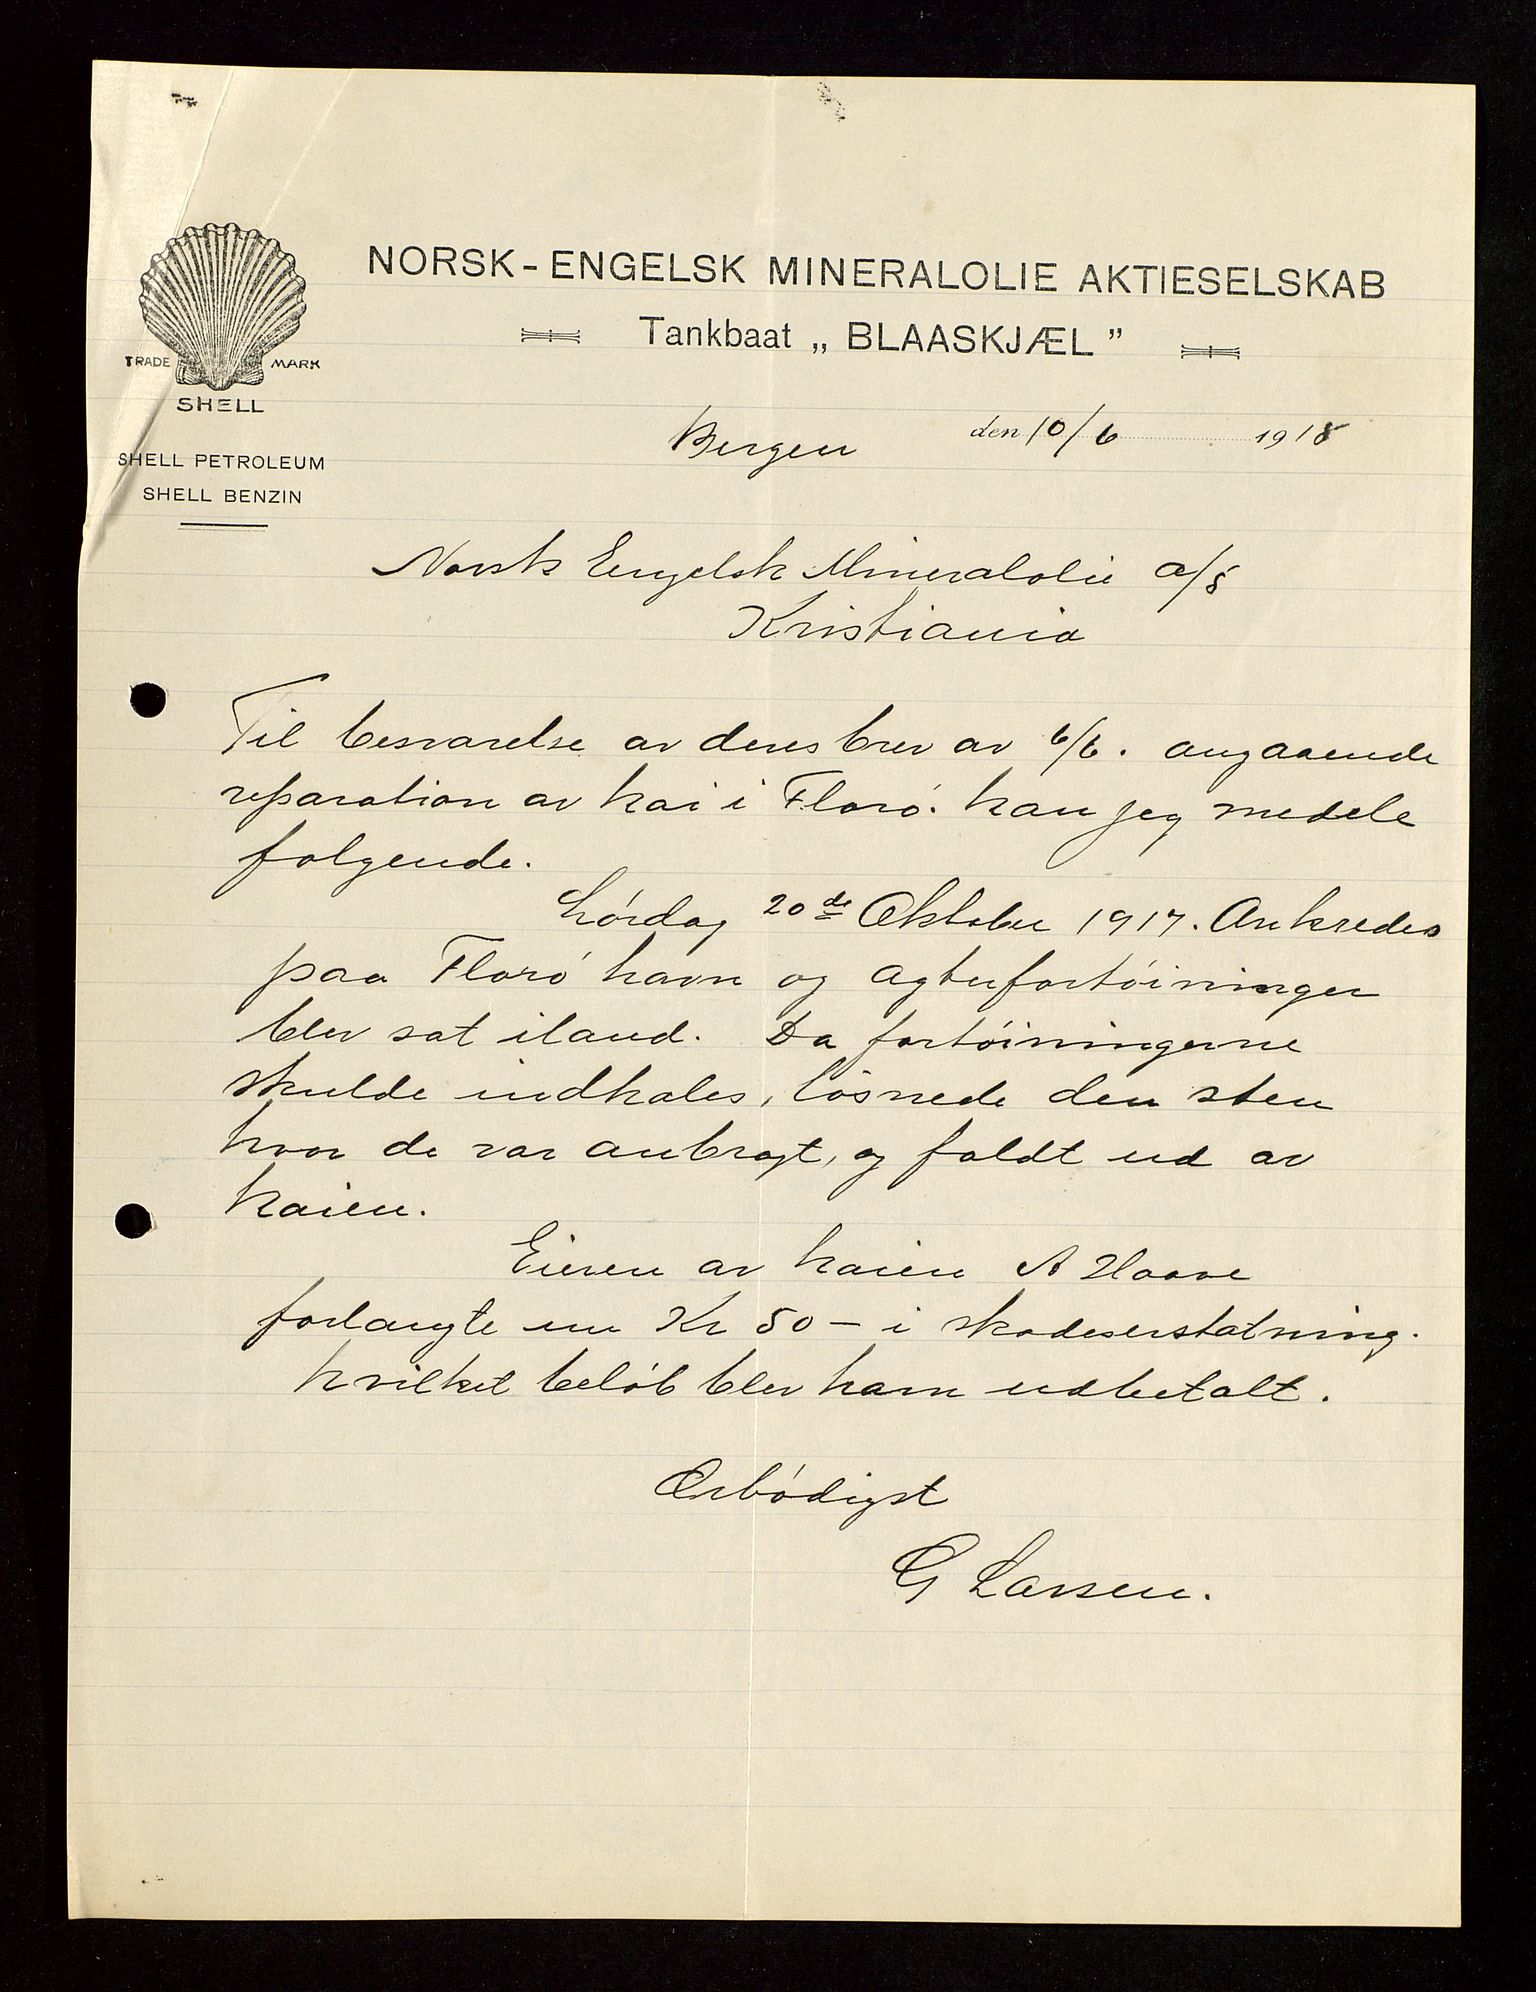 NORSK-ENGELSK MINERALOLIE AKTIESELSKAB
Tankbaat „BLAASKJÆL”
TRADE MARK
SHELL
SHELL PETROLEUM
SHELL BENZIN
Bergen den 10/6 1918
Norsk Engelsk Mineralolie a/s
Kristiania
Til besvarelse av deres brev av 6/6. angaaende
reparation av kai i Florö. kan jeg medele
følgende.
Lördag 20de Oktober 1917. Ankredes
paa Florö havn og agterfortöininger
blev sat iland. Da fortöiningerne
skulde indhales, lösnede den sten
hvor de var anbragt, og faldt ud av
kaien.
Eieren av kaien A Haave
forlangte en Kr 50 – i skadeserstatning.
hvilket belöb blev ham udbetalt.
Ærbödigst
G Larsen.